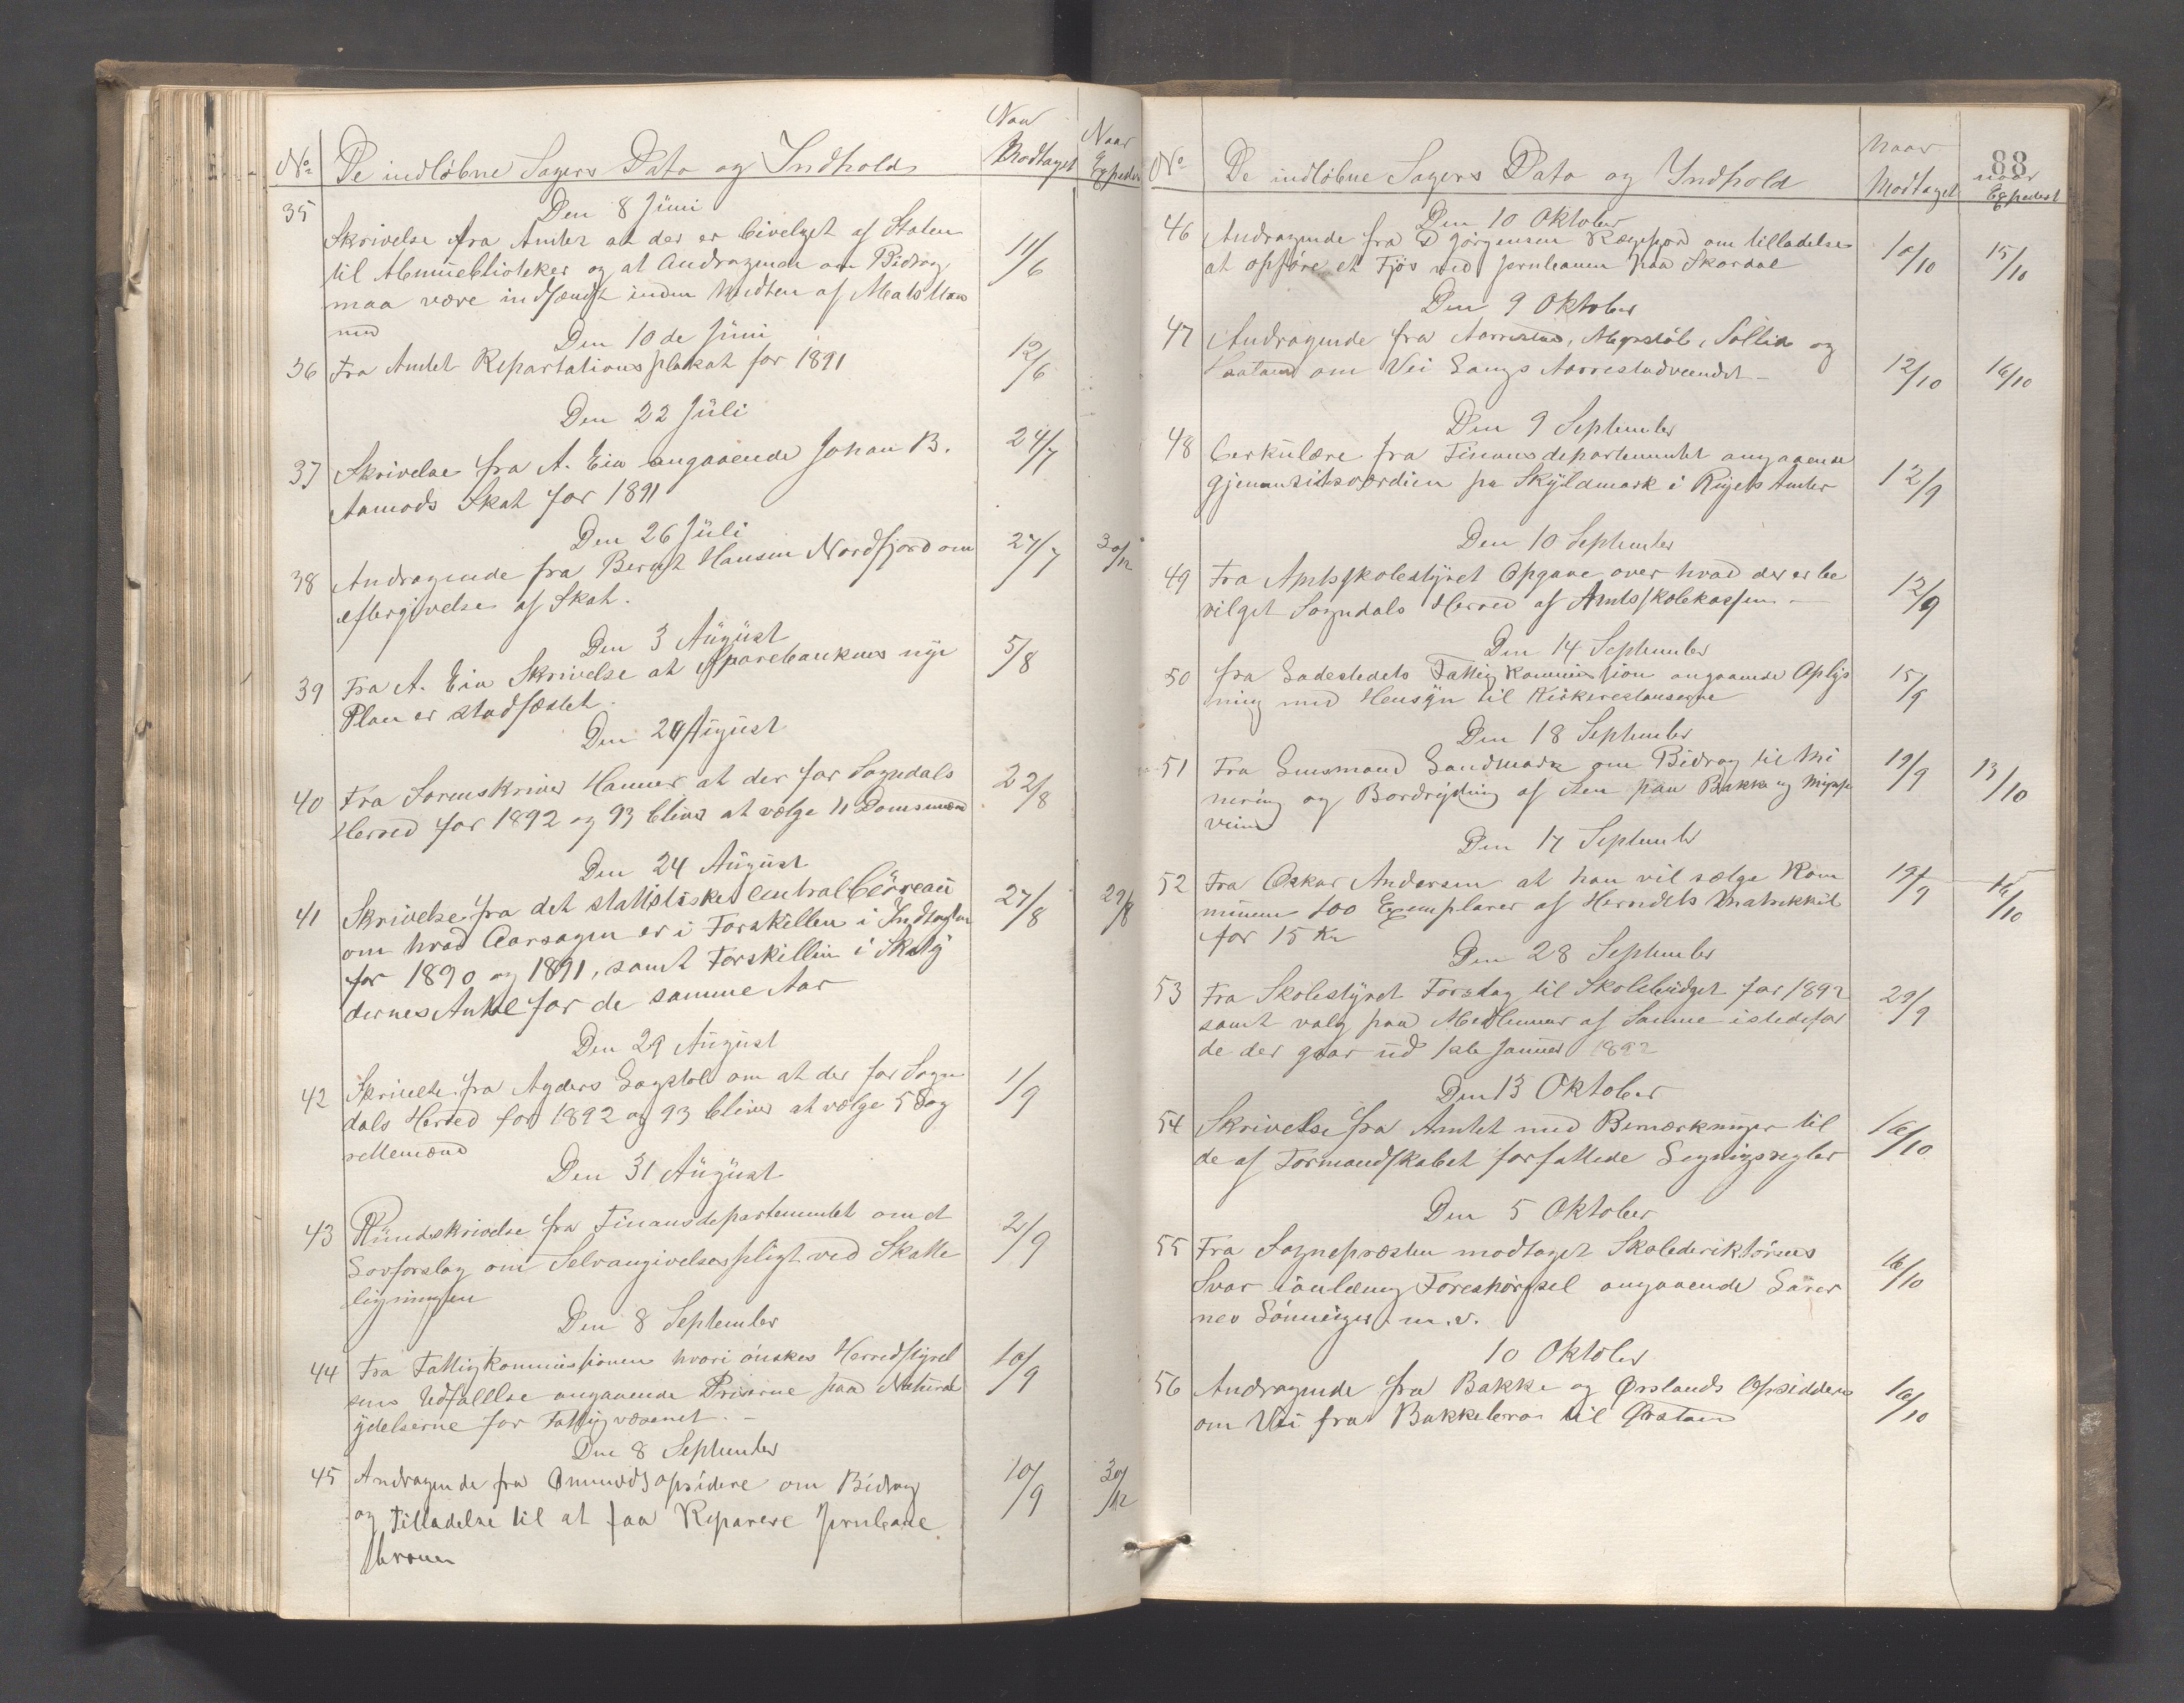 No De indløbne Sagers Dato og Indhold Naar Modtaget Naar Expederet
Den 8 Juni
35 Skrivelse fra Amtet at der er bevilget af Staten
til Almuebliotheker og at Andragender om Bidrag
maa være indsendt inden Midten af
11/6
Den 10de Juni
36 Fra Amtet Repartationsplakat for 1891 12/6
Den 22 Juli
37 Skrivelse fra A. Eia angaaende Johan B. 24/7
Aamods Skat for 1891
Den 26 Juli
38 Andragende fra Berent Hansen Nordfjord om 27/7 30/12
eftergivelse af Skat.
Den 3 August
39 Fra A. Eia Skrivelse at Sparebankens nye 5/8
Plan er stadfæstet.
Den August
40 Fra Sorenskriver at der for Sogndals 22/8
Herred for 1892 og 93 blive at vælge 11 Domsmænd
Den 24 August
41 Skrivelse fra det statistiske Centralbüreau 27/8 29/8
om hvad Aarsagen er i Forskillen i Indtægten
for 1890 og 1891, samt Forskillen i Skaty
dernes Antal for de samme Aar
Den 29 August
42 Skrivelse fra Agders Lagstol om at der for Sogn 1/9
dals Herred for 1892 og 93 bliver at vælge 5 Lag
rettemænd
Den 31 August
43 Rundskrivelse fra Finansdepartementet om et 2/9
Lovforslag om Selvangivelsespligt ved Skatte
ligningen
Den 8 September
44 Fra Fattigkommissionen hvori ønskes Herredstyrel 10/9
sens Udtallelse angaaende Priserne paa Natural
ydelserne for Fattigvæsenet. -
Den 8 September
45 Andragende fra Omundsopsidere om Bidrag 10/9 30/12
og Tilladelse til at faa Reparere Jernbane
broen
88
No De indløbne Sagers Dato og Indhold Naar Modtaget Naar Expederet
Den 10 Oktober
46 Andragende fra D Jørgensen Rægefjord om tilladelse 10/10 15/10
at opføre et Fjøs ved Jernbanen paa Skardal
Den 9 Oktober
47 Andragende fra Aarrestad, Møgedal, Sollia og
om Vei Langs Aarrestadvandet - 12/10 16/10
Den 9 September
48 Cerkulære fra Finansdepartementet angaaende
Gjenemsnitsværdien pr Skyldmark i Rigets Amter 12/9
Den 10 September
49 Fra Amtsskolestyret Opgave over hvad der er be
vilget Sogndals Herred af Amtsskolekassen. - 12/9
Den 14 September
50 fra Ladestedets Fattigkommission angaaende Oplys 15/9
ning med Hensyn til
Den 18 September
51 Fra Lensmand Sandmark om Bidrag til Mi 19/9 13/10
nering og Bordrydning af Sten paa Bakke og
veien
Den 17 September
52 Fra Oskar Andersen at han vil sælge Kom 19/9 16/10
munen 100 Exemplarer af Herredets Matrikkel
for 15 Kr
Den 28 September
53 Fra Skolestyret Forslag til Skolebudget for 1892 29/9
samt valg paa Medlemmer af Samme istedefor
de der gaar ud 1ste Januar 1892
Den 13 Oktober
54 Skrivelse fra Amtet med Bemærkninger til 16/10
de af Formandskabet forfattede Ligningsregler
Den 5 Oktober
55 Fra Sognepræsten modtaget Skolederiktørens
Svar iánlæng Foreshørgsel angaaende Lærer 16/10
nes Lønninger m.v.
10 Oktober
56 Andragende fra Bakke og Ørslands Opsiddere 16/10
om Vei fra Bakkebro til Ørsland